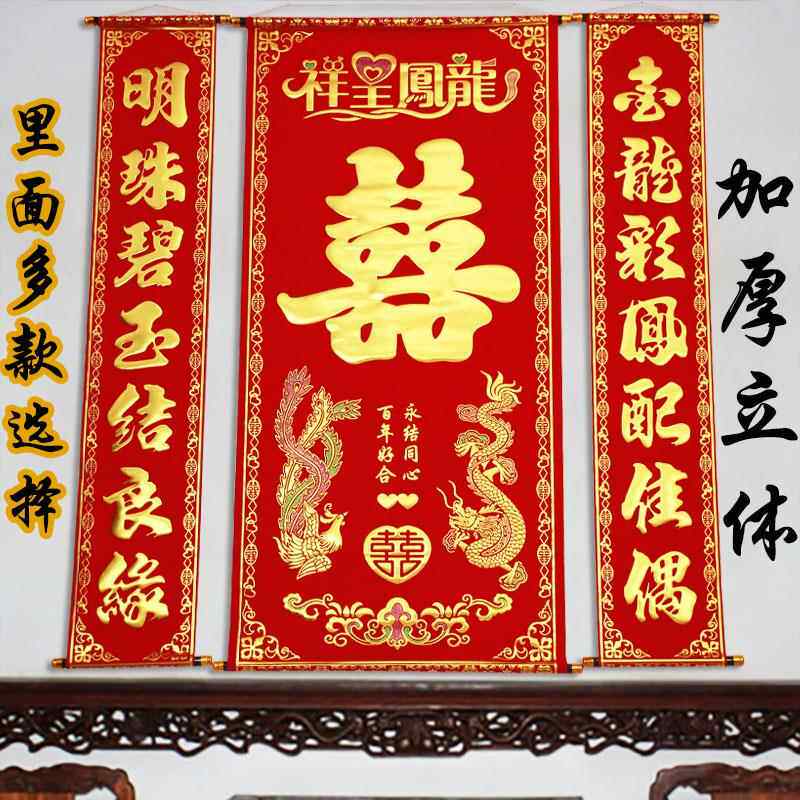 里面多款选择
加厚立体
龍鳳呈祥
囍
金龍彩鳳配佳偶
明珠碧玉结良緣
永结同心
百年好合
囍